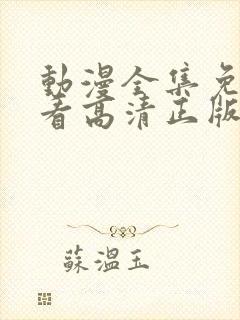 動漫全集免
看高清正版
蘇溫玉